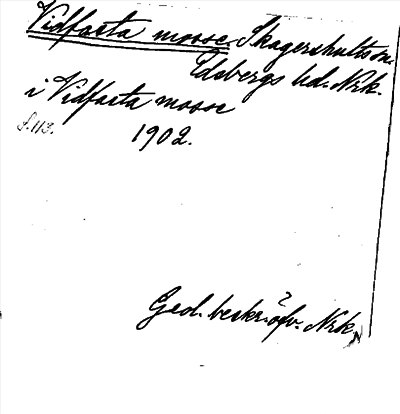 Vidfasta mosse. Skagershults sn.
Edsbergs hd. Nrk.
i Vidfasta mosse
s. 113. 1902.
Geol. beskr. öfv. Nrk.